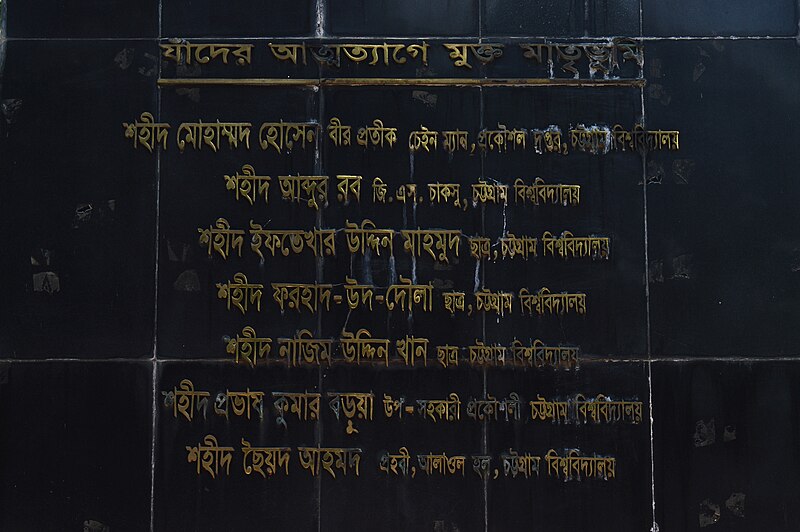 যাঁদের আত্মত্যাগে মুক্ত মাতৃভূমি
শহীদ মোহাম্মদ হোসেন বীর প্রতীক চেইন ম্যান, প্রকৌশল দপ্তর, চট্টগ্রাম বিশ্ববিদ্যালয়
শহীদ আব্দুর রব জি. এস. চাকসু, চট্টগ্রাম বিশ্ববিদ্যালয়
শহীদ ইফতেখার উদ্দিন মাহমুদ ছাত্র, চট্টগ্রাম বিশ্ববিদ্যালয়
শহীদ ফরহাদ-উদ-দৌলা ছাত্র, চট্টগ্রাম বিশ্ববিদ্যালয়
শহীদ নাজিম উদ্দিন খান ছাত্র চট্টগ্রাম বিশ্ববিদ্যালয়
শহীদ প্রভাষ কুমার বড়ুয়া উপ-সহকারী প্রকৌশলী চট্টগ্রাম বিশ্ববিদ্যালয়
শহীদ ছৈয়দ আহমদ প্রহরী, আলাওল হল, চট্টগ্রাম বিশ্ববিদ্যালয়